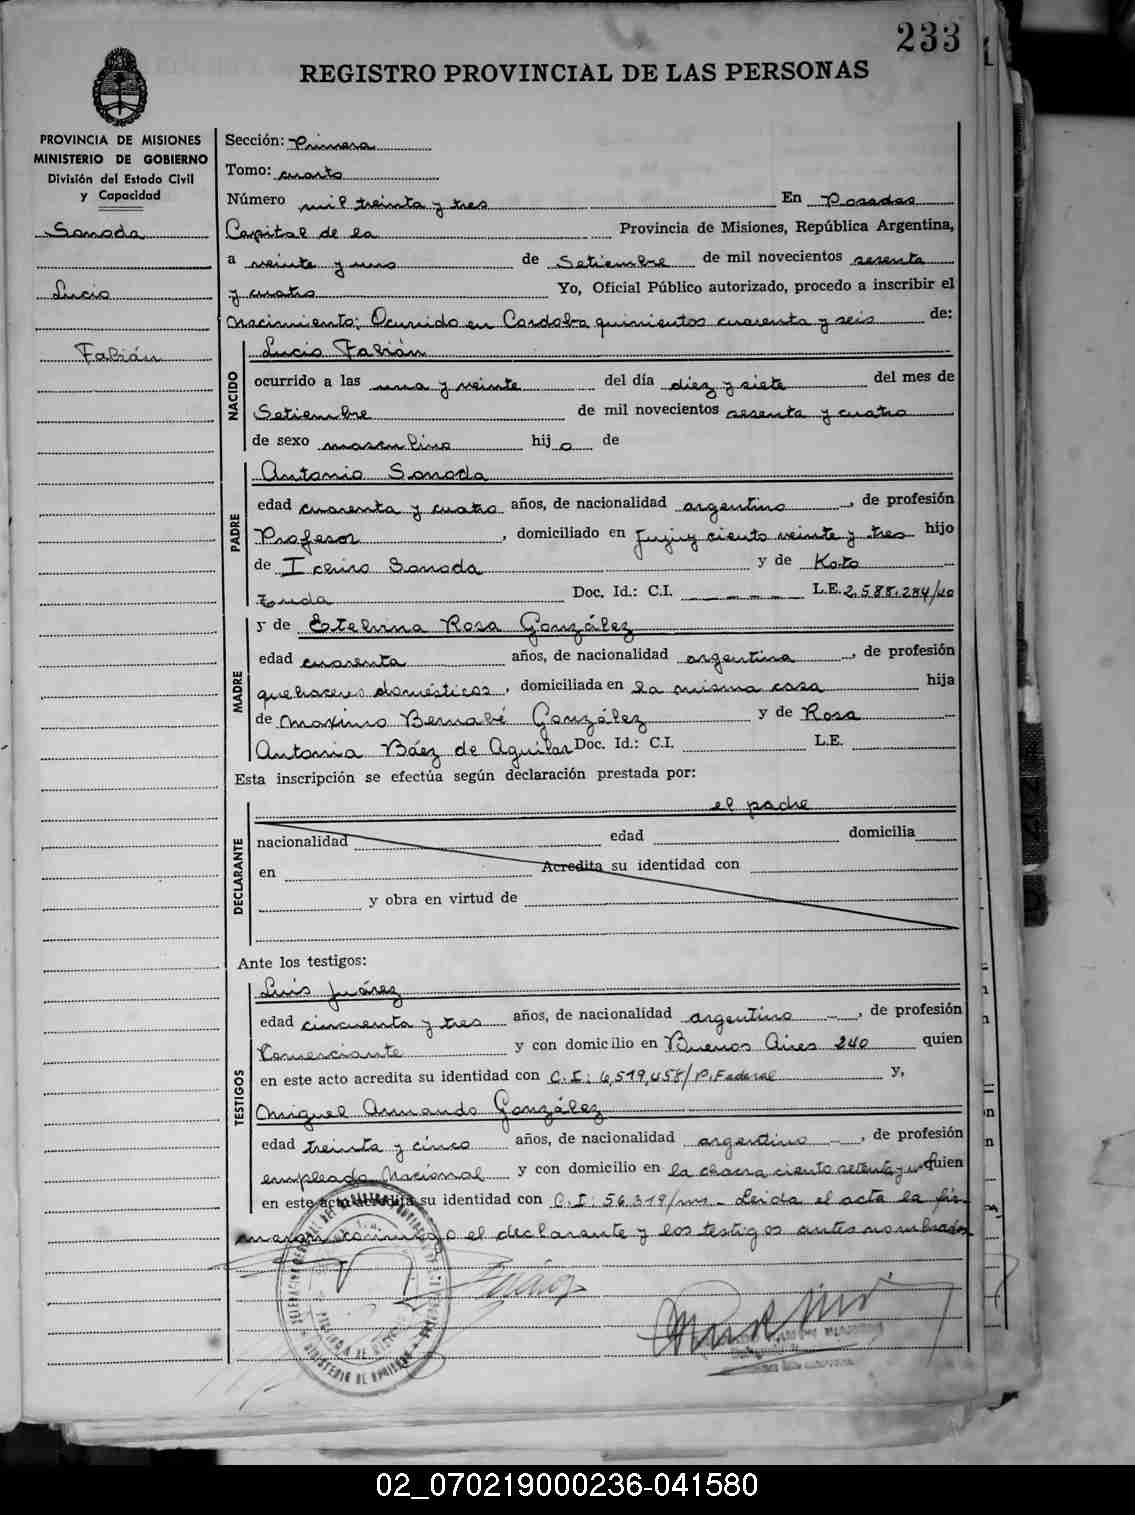 233
REGISTRO PROVINCIAL DE LAS PERSONAS
PROVINCIA DE MISIONES
MINISTERIO DE GOBIERNO
División del Estado Civil
y Capacidad
Sonoda
Lucio
Fabián
Sección: Primera
Tomo: cuarto
Número mil treinta y tres En Posadas
Capital de la Provincia de Misiones, República Argentina,
a veinte y uno de Setiembre de mil novecientos sesenta
y cuatro Yo, Oficial Público autorizado, procedo a inscribir el
nacimiento: Ocurrido en Cordoba quinientos cuarenta y seis de:
NACIDO
Lucio Fabián
ocurrido a las una y veinte del día diez y siete del mes de
Setiembre de mil novecientos sesenta y cuatro
de sexo masculino hijo de
PADRE
Antonio Sonoda
edad cuarenta y cuatro años, de nacionalidad argentino, de profesión
Profesor, domiciliado en Jujuy ciento veinte y tres hijo
de Ichiro Sonoda y de Koto
Doc. Id.: C.I. L.E. 2.588.284/40
MADRE
y de Estelvina Rosa González
edad cuarenta años, de nacionalidad argentina, de profesión
quehaceres domésticos, domiciliada en la misma casa hija
de Maximo Bernabé González y de Rosa
Antonia Báez de Aguilar Doc. Id.: C.I. L.E.
Esta inscripción se efectúa según declaración prestada por:
DECLARANTE
el padre
nacionalidad edad domicilia
en Acredita su identidad con
y obra en virtud de
Ante los testigos:
TESTIGOS
Luis Juárez
edad cincuenta y tres años, de nacionalidad argentino, de profesión
Comerciante y con domicilio en Buenos Aires 240 quien
en este acto acredita su identidad con C.I: 6,519,458/P.Federal y,
Miguel Armando González
edad treinta y cinco años, de nacionalidad argentino, de profesión
empleado Nacional y con domicilio en la chacra ciento setenta y uno quien
en este acto acredita su identidad con C.I: 56.319/ms - Leida el acta la fir-
maron conmigo el declarante y los testigos antes nombrados
02_070219000236-041580